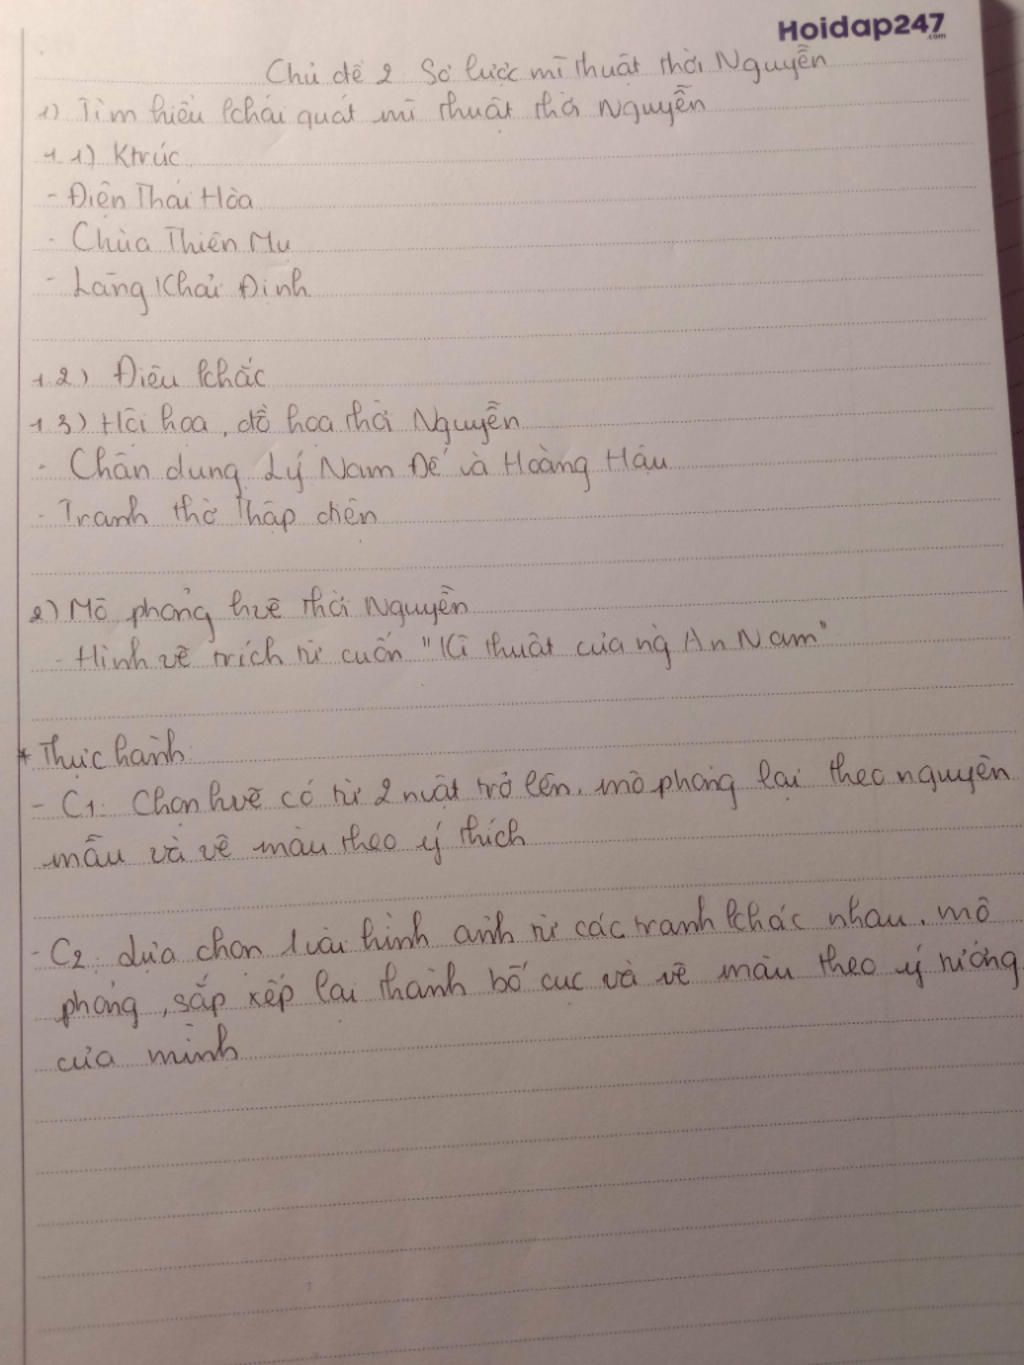 Hoidap247
.com
Chủ đề 2 Sơ lược mĩ thuật thời Nguyễn
1) Tìm hiểu khái quát mĩ thuật thời Nguyễn
1.1) Ktrúc
- Điện Thái Hòa
- Chùa Thiên Mụ
- Lăng Khải Định
1.2) Điêu khắc
1.3) Hội họa, đồ họa thời Nguyễn
- Chân dung Lý Nam Đế và Hoàng Hậu
- Tranh thờ Thập điện
2) Mô phỏng hvẽ thời Nguyễn
- Hình vẽ trích từ cuốn "Kĩ thuật của ng An Nam"
* Thực hành:
- C1: Chọn hvẽ có từ 2 nvật trở lên, mô phỏng lại theo nguyên
mẫu và vẽ màu theo ý thích
- C2: lựa chọn 1 vài hình ảnh từ các tranh khác nhau, mô
phỏng, sắp xếp lại thành bố cục và vẽ màu theo ý tưởng
của mình